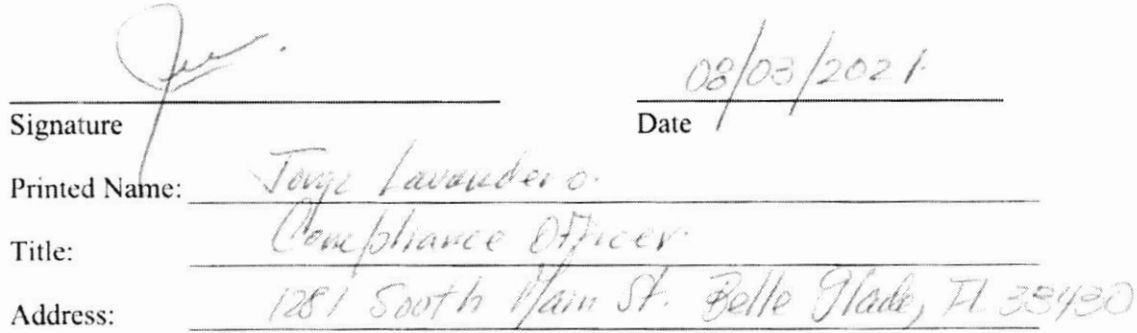 08/03/2021
Signature Date
Printed Name: Jorge Lavandero.
Title: Compliance Officer
Address: 1281 South Main St. Belle Glade, FL 33430